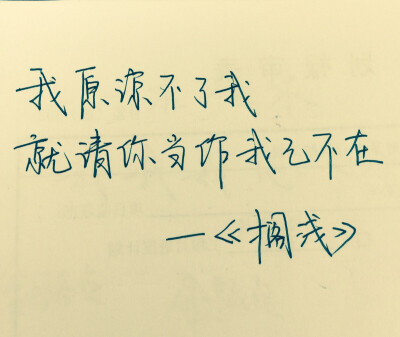 我原谅不了我
就请你当作我已不在
—《搁浅》